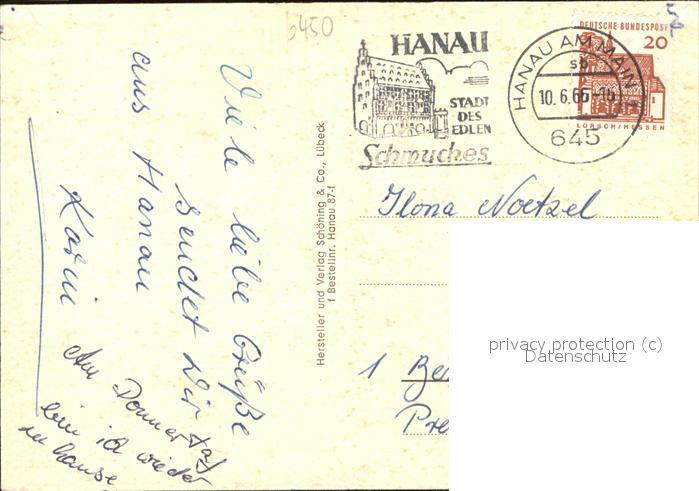 6450
Viele liebe Grüße
sendet Dir
aus Hanau
Karin
Am Donnerstag
bin ich wieder
zu Hause
Hersteller und Verlag Schöning & Co., Lübeck
f Bestellnr. Hanau 87-f
HANAU
STADT
DES
EDLEN
Schmuckes
HANAU AM MAIN
sb
10.6.66-16
645
DEUTSCHE BUNDESPOST
20
LORSCH/HESSEN
Ilona Noetzel
1 Be
Pre
privacy protection (c)
Datenschutz